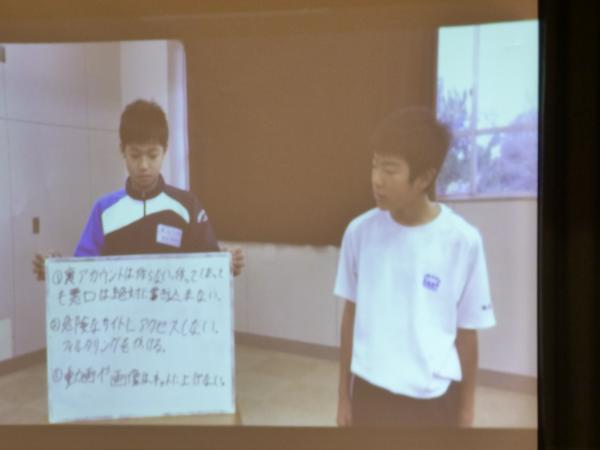 ①裏アカウントは作らない。作ってしまって
も悪口は絶対に書き込まない。
②危険なサイトにアクセスしない。
フィルタリングを付ける。
③動画や画像はネットに上げない。